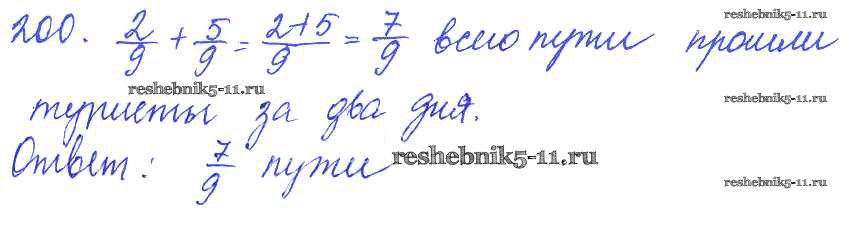 reshebnik5-11.ru
200. 2/9 + 5/9 = 2+5/9 = 7/9 всего пути прошли
reshebnik5-11.ru reshebnik5-11.ru
туристы за два дня.
Ответ: 7/9 пути reshebnik5-11.ru
reshebnik5-11.ru